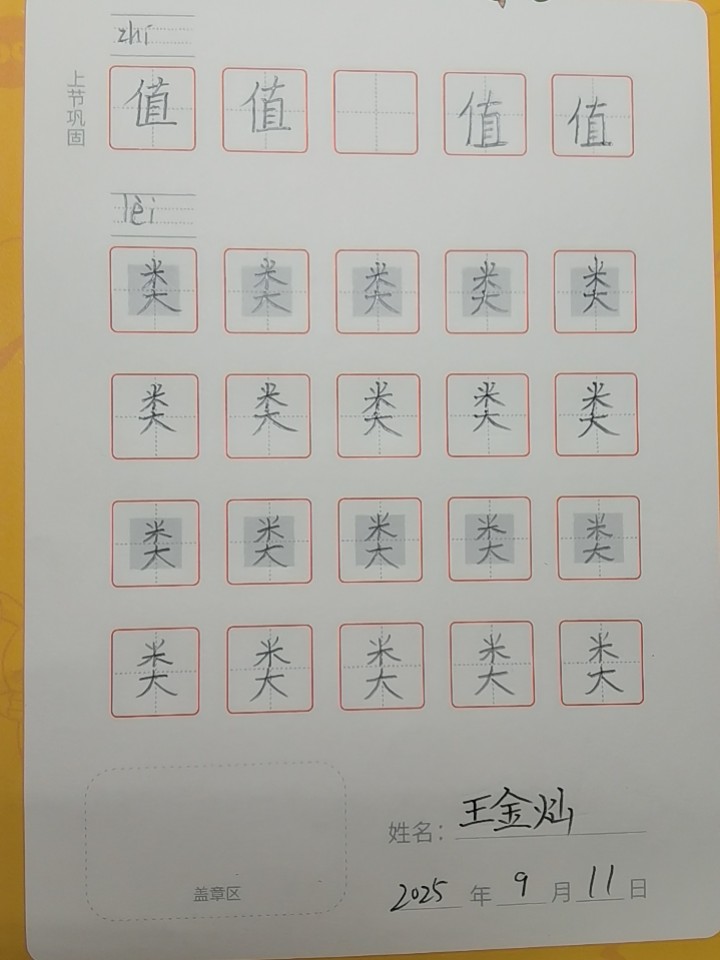 zhí
上节巩固
值 值 值 值
lèi
类 类 类 类 类
类 类 类 类 类
类 类 类 类 类
类 类 类 类 类
姓名：王金灿
盖章区
2025 年 9 月 11 日